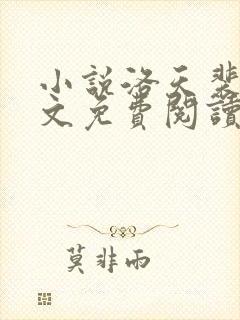 小説洛天斐
文免費閱讀
莫非雨